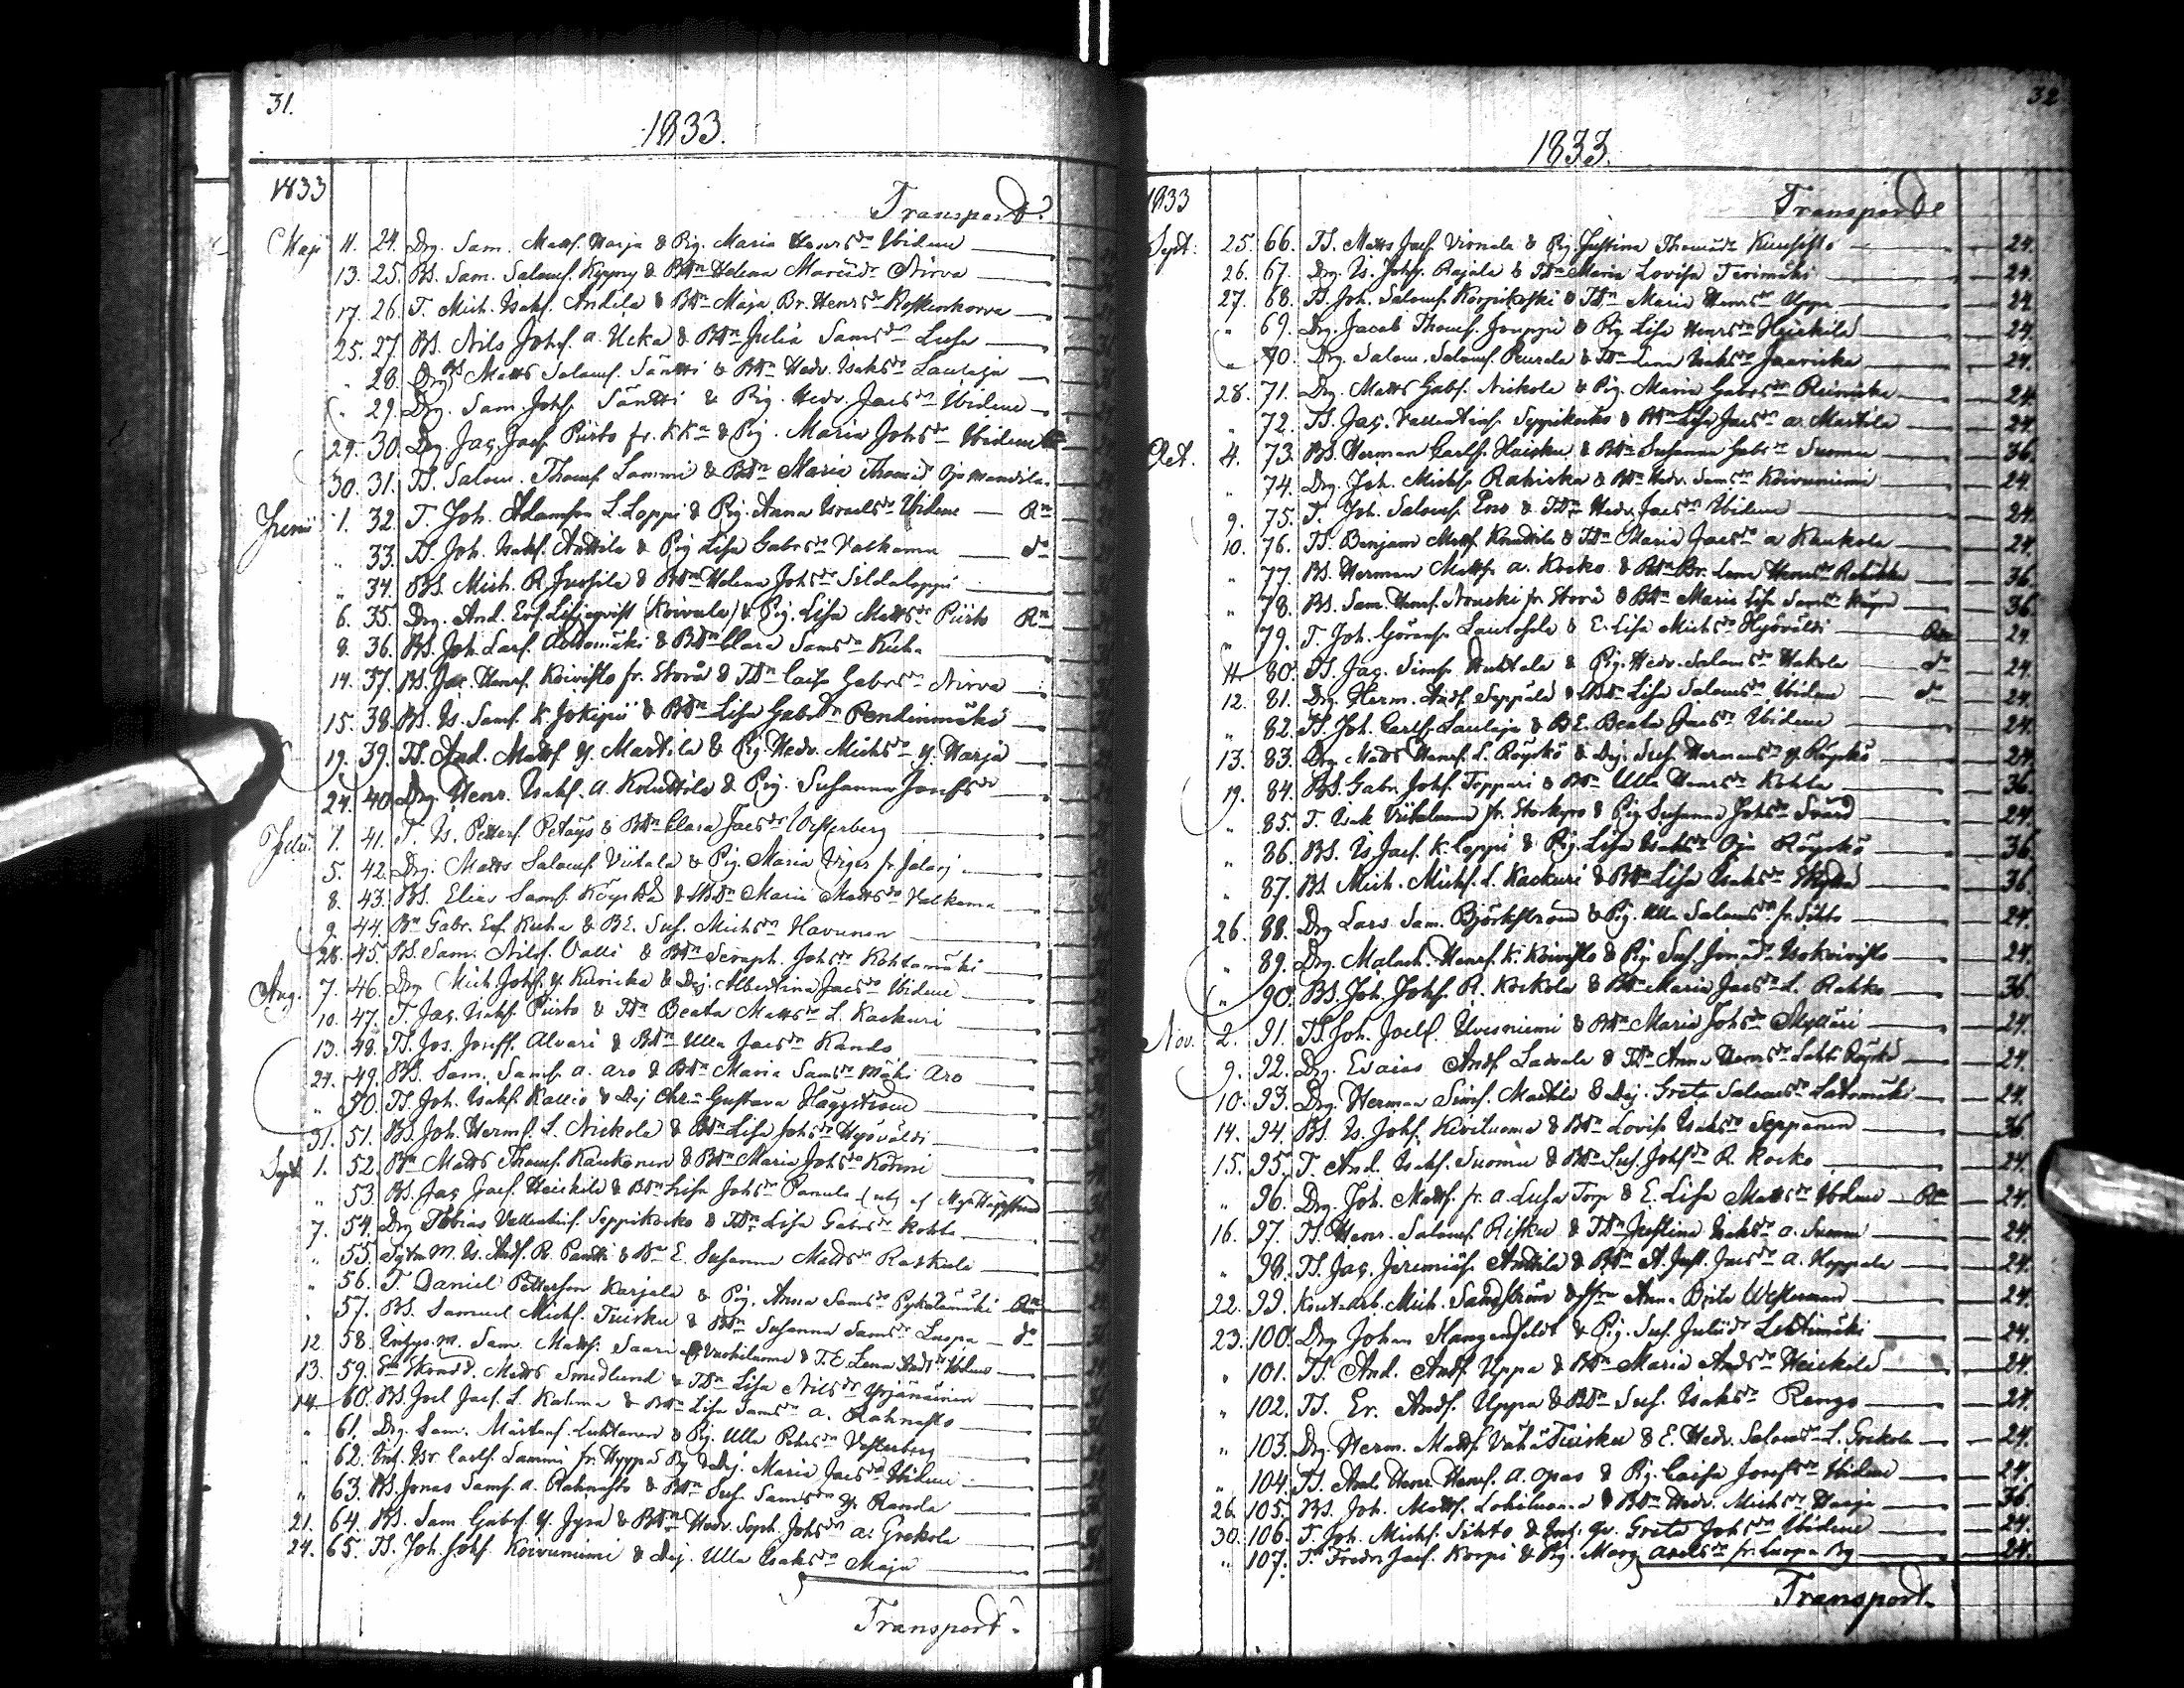 31.
1833.
1833
Transport
Maji 11. 24. Drg. Sam. Matts. Harja & Pig. Maria Henrsdr Ibidem
13. 25. BS. Sam. Salomss. Kyyny & BDr Helena Mariidr Nirva
17. 26. T. Mich. Isaks. Andila & BDr Maja Br. Henrsdr Koskenkorva
25. 27. BS. Nils Johs. a. Ucka & BDr Julia Samsdr Lusa
" 28. Drg BS Matts Salomss. Säntti & BDr Hedv. Isaksdr Laulaja
" 29. Drg. Sam Johs. Säntti & Pig. Hedv. Jacsdr Ibidem
29. 30. Drg. Jac. Jacs. Piirto fr. KKa & Pig. Maria Johsdr Ibidem
30. 31. TS. Salom. Thoms. Lammi & BDr Maria Thomsdr Ojamandila
Junii 1. 32. T. Joh. Adamsson L. Loppi & Pig. Anna Israelsdr Ibidem Rn
" 33. TS. Joh. Isaks. Anttila & Pig Lisa Gabrsdr Valkama do
" 34. BS. Mich. R. Jussila & BDr Helena Johsdr Silldaloppi
6. 35. Drg. And. Ers. Liljeqvist (Koivula) & Pig. Lisa Mattsdr Piirto Rn
8. 36. BS. Joh. Lars. Aittomäki & BDr Clara Samsdr Kuha
14. 37. BS. Jac. Henrs. Koivisto fr. Storå & TDr Caisa Gabrsdr Nirva
15. 38. BS. Is. Sams. K. Jokipii & BDr Lisa Gabrsdr Pendinmäki
19. 39. TS. And. Matts. Y. Martila & Pig. Hedv. Michsdr Y. Harja
24. 40. Drg. Henr. Isaks. a. Knuttila & Pig. Susanna Josefsdr
Julii 1. 41. T. Is. Petters. Petäys & BDr Clara Jacsdr Westerberg
5. 42. Drg. Matts Salomss. Viitala & Pig. Maria Viger fr Jalasj.
8. 43. BS. Elias Sams. Röyskö & BDr Maria Mattsdr Valkama
9. 44. Bn Gabr. Ers. Kuha & BE. Sus. Michsdr Havunen
28. 45. BS. Sam. Nils. Valli & BDr Seraph. Johsdr Kohtamäki
Aug. 7. 46. Drg Mich Johs. Y. Kuricka & Dej. Albertina Jacsdr Ibidem
10. 47. T. Jac. Isaks. Piirto & TDr Beata Mattsdr L. Kackuri
13. 48. TS. Jos. Josefs. Alvari & BDr Ulla Jacsdr Kando
24. 49. BS. Sam. Sams. a. Aro & BDr Maria Samsdr Mäki Aro
" 50. TS. Joh. Isaks. Kallio & Dej Chra Gustava Häggström
31. 51. BS. Joh. Herms. L. Nickola & BDr Lisa Johsdr Hyöväldi
Sept 1. 52. Bn Matts Thoms. Kaukonen & BDr Maria Johsdr Kohni
" 53. BS. Jac Jacs. Heickilä & BDr Lisa Johsdr Panula
7. 54. Drg Tobias Vallentins. Seppikocko & TDr Lisa Gabrsdr Kohla
" 55. Sytm M. Is. Ands. R. Pantti & Dr E. Susanna Mattsdr Raskula
" 56. T. Daniel Petterson Karjala & Pig. Anna Samsdr Pykälämäki Rn
" 57. BS. Samuel Michs. Tuisku & BDr Susanna Samsdr Luopa do
12. 58. Sam. Matts. Saari & T.E. Lena Andsdr Ibidem
13. 59. Matts Smedlund & TDr Lisa Nilsdr Yrjänäinen
14. 60. BS. Joel Jacs. L. Kalma & BDr Lisa Samsdr a. Rahnasto
" 61. Drg. Sam. Mårtens. Luhtanen & Pig. Ulla Pehrsdr Vesterberg
" 62. Inh. Isr. Carls. Lammi fr. Hyypä By & Dej. Maria Jacsdr Ibidem
" 63. BS. Jonas Sams. a. Rahnasto & BDr Sus. Samsdr Y. Randa
21. 64. BS. Sam Gabrs. Y. Jyrä & BDr Hedv. Soph. Johsdr a. Grekola
24. 65. TS. Joh. Johs. Koivuniemi & Dej. Ulla Isaksdr Maja
Transport
32
1833.
1833
Transport
Sept. 25. 66. TS. Matts Jacs. Virnala & Pig. Justina Thomasdr Kuusisto 24.
26. 67. Drg. Is. Johs. Rajala & TDr Maria Lovisa Terimäki 24.
27. 68. TS. Joh. Salomss. Korpikoski & TDr Maria Henrsdr Uppa 24.
" 69. Drg. Jacob Thoms. Jouppi & Pig Lisa Henrsdr Heickilä 24.
" 70. Drg. Salom. Salomss. Rurala & TDr Lena Isaksdr Jaaricka 24.
28. 71. Drg. Matts Gabs. Nickola & Pig. Maria Gabrsdr Reinicka 24.
" 72. TS. Jac. Vallentins. Seppikocko & BDr Lisa Jacsdr a. Martila 24.
Oct. 4. 73. BS. Herman Carls. Haisku & BDr Susanna Gabrsdr Suomu 36.
" 74. Drg. Joh. Michs. Rahicka & BDr Hedv. Samsdr Koivuniemi 24.
9. 75. T. Joh. Salomss. Eno & TDr Hedv. Jacsdr Ibidem 24.
10. 76. TS. Benjam Matts. Knuttila & TDr Maria Jacsdr a Kaukola 24.
" 77. BS. Herman Matts. a. Kocko & BDr Br. Lena Henrsdr Rahikka 36.
" 78. BS. Sam. Henrs. Nouski fr. Storå & BDr Maria Lisa Samsdr 36.
" 79. T. Joh. Görans. Lautosola & E. Lisa Michsdr Hyövälti Rn 24.
11. 80. TS. Jac. Sims. Huhtala & Pig. Hedv. Salomsdr Hakola do 24.
12. 81. Drg. Herm. Ands. Seppälä & BDr Lisa Salomsdr Ibidem do 24.
" 82. TS. Joh. Carls. Laulaja & BE. Beata Jacsdr Ibidem 24.
13. 83. Drg Matts Henrs. L. Röyskö & Dej. Sus. Hermansdr Y. Röyskö 24.
19. 84. BS. Gabr. Johs. Toppari & BDr Ulla Henrsdr Kohla 36.
" 85. T. Isak Viitaluoma fr. Storkyro & Pig Susanna Johsdr Svärd 24.
" 86. BS. Is Jacs. K. Loppi & Pig. Lisa Isaksdr Oja Röyskö 36.
" 87. BS. Mich. Michs. L. Kackuri & BDr Lisa Isaksdr 36.
26. 88. Drg Lars Sam. Björkström & Pig. Ulla Salomsdr fr. Sihto 24.
" 89. Drg. Malach. Henrs. K. Koivisto & Pig Sus. Jonædr Isokoivisto 24.
" 90. BS. Joh. Johs. R. Kockola & BDr Maria Jacsdr L. Rahko 36.
Nov. 2. 91. TS. Joh. Joels. Uvesniemi & BDr Maria Johsdr Mylläri 24.
9. 92. Drg. Esaias Ands. Ladvala & TDr Anna Henrsdr Lahti Röyskö 24.
10. 93. Drg. Herman Sims. Martila & Dej. Greta Salomsdr Latomäki 24.
14. 94. BS. Is. Johs. Kiviluoma & BDr Lovisa Isaksdr Seppänen 36.
15. 95. T. And. Isaks. Suomu & BDr Sus. Johsdr R. Kocko 24.
" 96. Drg. Joh. Matts. fr. a. Lusa Torp & E. Lisa Mattsdr Ibidem Rn 24.
16. 97. TS. Henr. Salomss. Risku & TDr Justina Isaksdr a. Summa 24.
" 98. TS. Jac. Jeremiæs. Anttila & BDr A. Just. Jacsdr a. Koppala 24.
22. 99. Kontr.Arb. Mich. Sandström & Anna Brita Westerman 24.
23. 100. Drg Johan Hangenfeldt & Pig. Sus. Juliidr Lehtimäki 24.
" 101. TS. And. Ands. Uppa & BDr Maria Andsdr Heickilä 24.
" 102. TS. Er. Ands. Uppa & BDr Sus. Isaksdr Rengo 24.
" 103. Drg. Herm. Matts. Vähä Tuisku & E. Hedv. Salomsdr L. Grekola 24.
" 104. TS. Henr. Henrs. a. Opas & Pig. Caisa Josefsdr Ibidem 24.
26. 105. BS. Joh. Matts. Lohiluoma & BDr Hedv. Michsdr Harja 36.
30. 106. T. Joh. Michs. Sihto & Inh. Qv. Greta Johsdr Ibidem 24.
" 107. T. Fredr. Jacs. Korpi & Pig. Marg Axelsdr fr. Luopa By 24.
Transport